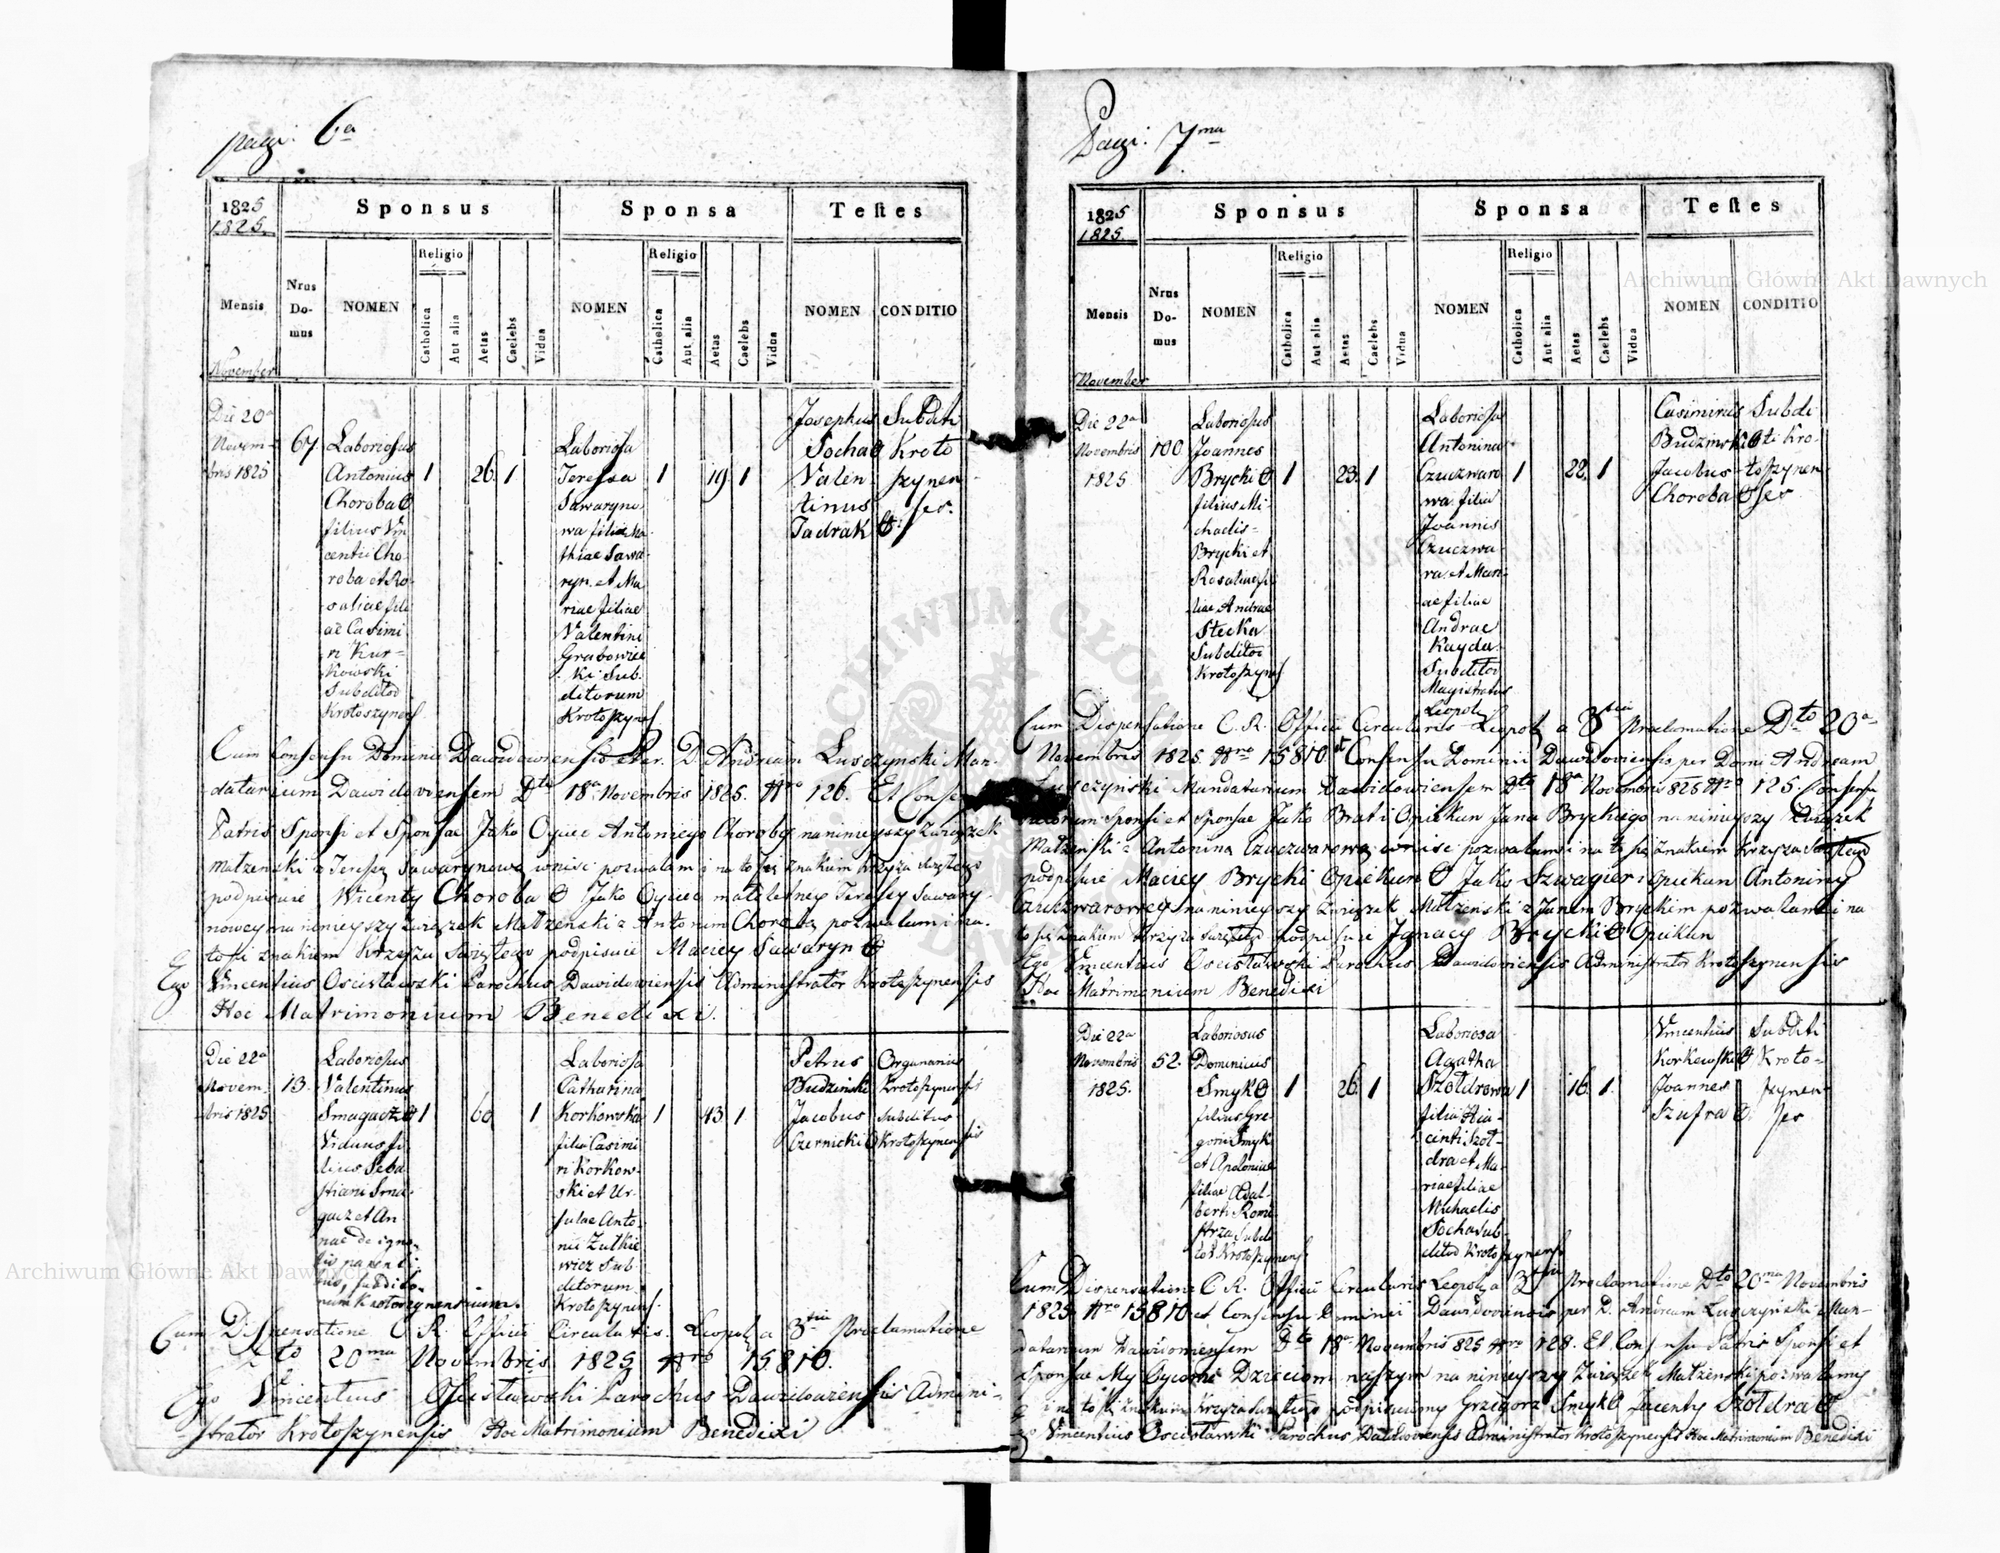 pagi: 6a
1825
1825.
Sponsus
Sponsa
Testes
Mensis
Nrus Do- mus
NOMEN
Religio
Catholica
Aut alia
Aetas
Caelebs
Vidua
NOMEN
Religio
Catholica
Aut alia
Aetas
Caelebs
Vidua
NOMEN
CONDITIO
November
Die 20a
Novem-
bris 1825
67.
Laboriosus
Antonius
Choroba
filius Vin
centii Cho-
roba et Ro-
saliae fili
ae Casimi
ri Kur-
kowski
Subditor
Krotoszynens
1
26.
1
Laboriosa
Teressa
Sawaryno
wa filia Ma-
thiae Sawa-
ryn. et Ma
riae filiae
Valentini
Grabowiec
ki Sub-
ditorum
Krotoszynens
1
19
1
Josephus
Socha
Valen-
tinus
Jadrak
Subditi
Kroto
szynen
ses.
Cum Consensu Dominii Dawidowiensis per D. Andream Lusczynski Man-
datarium Dawidoviensem Dto 18a Novembris 1825. Nro 126. Et Conse
Patris Sponsi et Sponsae Jako Oyciec Antoniego Choroby na ninieyszy Związek
Małzenski z Teressą Sawarynową wniść pozwalam i na to się znakiem Krzyża Swiętego
podpisuie Wicenty Choroba Jako Oyciec małoletney Teressy Sawary-
nowey na ninieyszy związek Małzenski z Antonim Chorobą pozwalam i na
to się znakiem Krzyża Swiętego podpisuie Maciey Sawaryn
Ego Vincentius Oscisławski Parochus Dawidoviensis Administrator Krotoszynensis
Hoc Matrimonium Benedixi.
Die 22a
Novem-
bris 1825
13.
Laboriosus
Valentinus
Smagacz
Viduus fi
lius Seba
stiani Sma-
gacz et An
nae de igno-
tis parenti
bus, subdito-
rum Krotoszynensium.
1
60
1
Laboriosa
Catharina
Korkowska
filia Casimi
ri Korkow-
ski et Ur-
sulae Anto-
nii Zulkie
wicz sub-
ditorum
Krotoszynens.
1
43
1
Petrus
Budzinski
Jacobus
Czernicki
Organarius
Krotoszynensis
Subditus
Krotoszynensis
Cum Dispensatione C. R. Officii Circularis Leopol. a 3tia Proclamatione
Dto 20ma Novembris 1825 Nro 15810.
Ego Vincentius Oscisławski Parochus Dawidoviensis Admini-
strator Krotoszynensis Hoc Matrimonium Benedixi
Pagi: 7ma
1825
1825.
Sponsus
Sponsa
Testes
Mensis
Nrus Do- mus
NOMEN
Religio
Catholica
Aut alia
Aetas
Caelebs
Vidua
NOMEN
Religio
Catholica
Aut alia
Aetas
Caelebs
Vidua
NOMEN
CONDITIO
November
Die 22a
Novembris
1825
100
Laboriosus
Joannes
Brycki
filius Mi-
chaelis
Brycki et
Rosaliae fi
liae Andrae
Stecka
Subditor
Krotoszyns
1
23.
1
Laboriosa
Antonina
Czuczwaro
wa filia
Joannis
Czuczwa-
ra et Mari-
ae filiae
Andrae
Kayda
Subditor
Magistratus
Leopol
1
22.
1
Casimirus
Budzinski
Jacobus
Choroba
Subdi
ti Kro-
toszynen
ses
Cum Dispensatione C. R. Officii Circularis Leopol a 3tia Proclamatione Dto 20a
Novembris 1825. Nro 15810 et Consensu Dominii Dawidoviensis per Domi Andream
Lusczynski Mandatarium Dawidowiensem Dto 18a Novembris 825 Nro 125. Consensu
Tutorum Sponsi et Sponsae Jako Brat i Opiekun Jana Bryckiego na ninieyszy Związek
Małzenski z Antoniną Czuczwarową wniść pozwalam i na to się znakiem Krzyża
podpisuie Maciey Brycki Opiekun Jako Szwagier i Opiekun Antoniny
Czuczwarowey na ninieyszy Związek Małzenski z Janem Bryckim pozwalam i na
to się znakiem Krzyża Swiętego podpisuie Jgnacy Brycki Opiekun
Ego Vincentius Oscisławski Parochus Dawidoviensis Administrator Krotoszynensis
Hoc Matrimonium Benedixi
Die 22a
Novembris
1825.
52.
Laboriosus
Dominicus
Smyk
filius Gre-
gorii Smyk
et Apoloniae
filiae Adal-
berti Romi
strza Subdi
tor Krotoszynens
1
26.
1
Laboriosa
Agatha
Szołdrowa
filia Hia-
cinti Szoł-
dra et Ma-
riae filiae
Michaelis
Socha sub-
ditor Krotoszynens
1
16.
1.
Vincentius
Korkowski
Joannes
Szufra
Subditi
Kroto-
szynen
ses
Cum Dispensatione C. R. Officii Circularis Leopol a 3tia Proclamatione Dto 20ma Novembris
1825 Nro 15810 et Consensu Dominii Dawidoviensis per D. Andream Lusczynski Man-
datarium Dawidowiensem Dto 18a Novembris 825 Nro 128. Et Consensu Patris Sponsi et
Sponsae My Oycowie Dzieciom naszym na ninieyszy Związek Małzenski pozwalamy
i na to się znakiem Krzyża Swiętego podpisuiemy Grzegorz Smyk Jacenty Szołdra
Ego Vincentius Oscisławski Parochus Dawidoviensis Administrator Krotoszynensis Hoc Matrimonium Benedixi
Archiwum Główne Akt Dawnych
Archiwum Główne Akt Dawnych